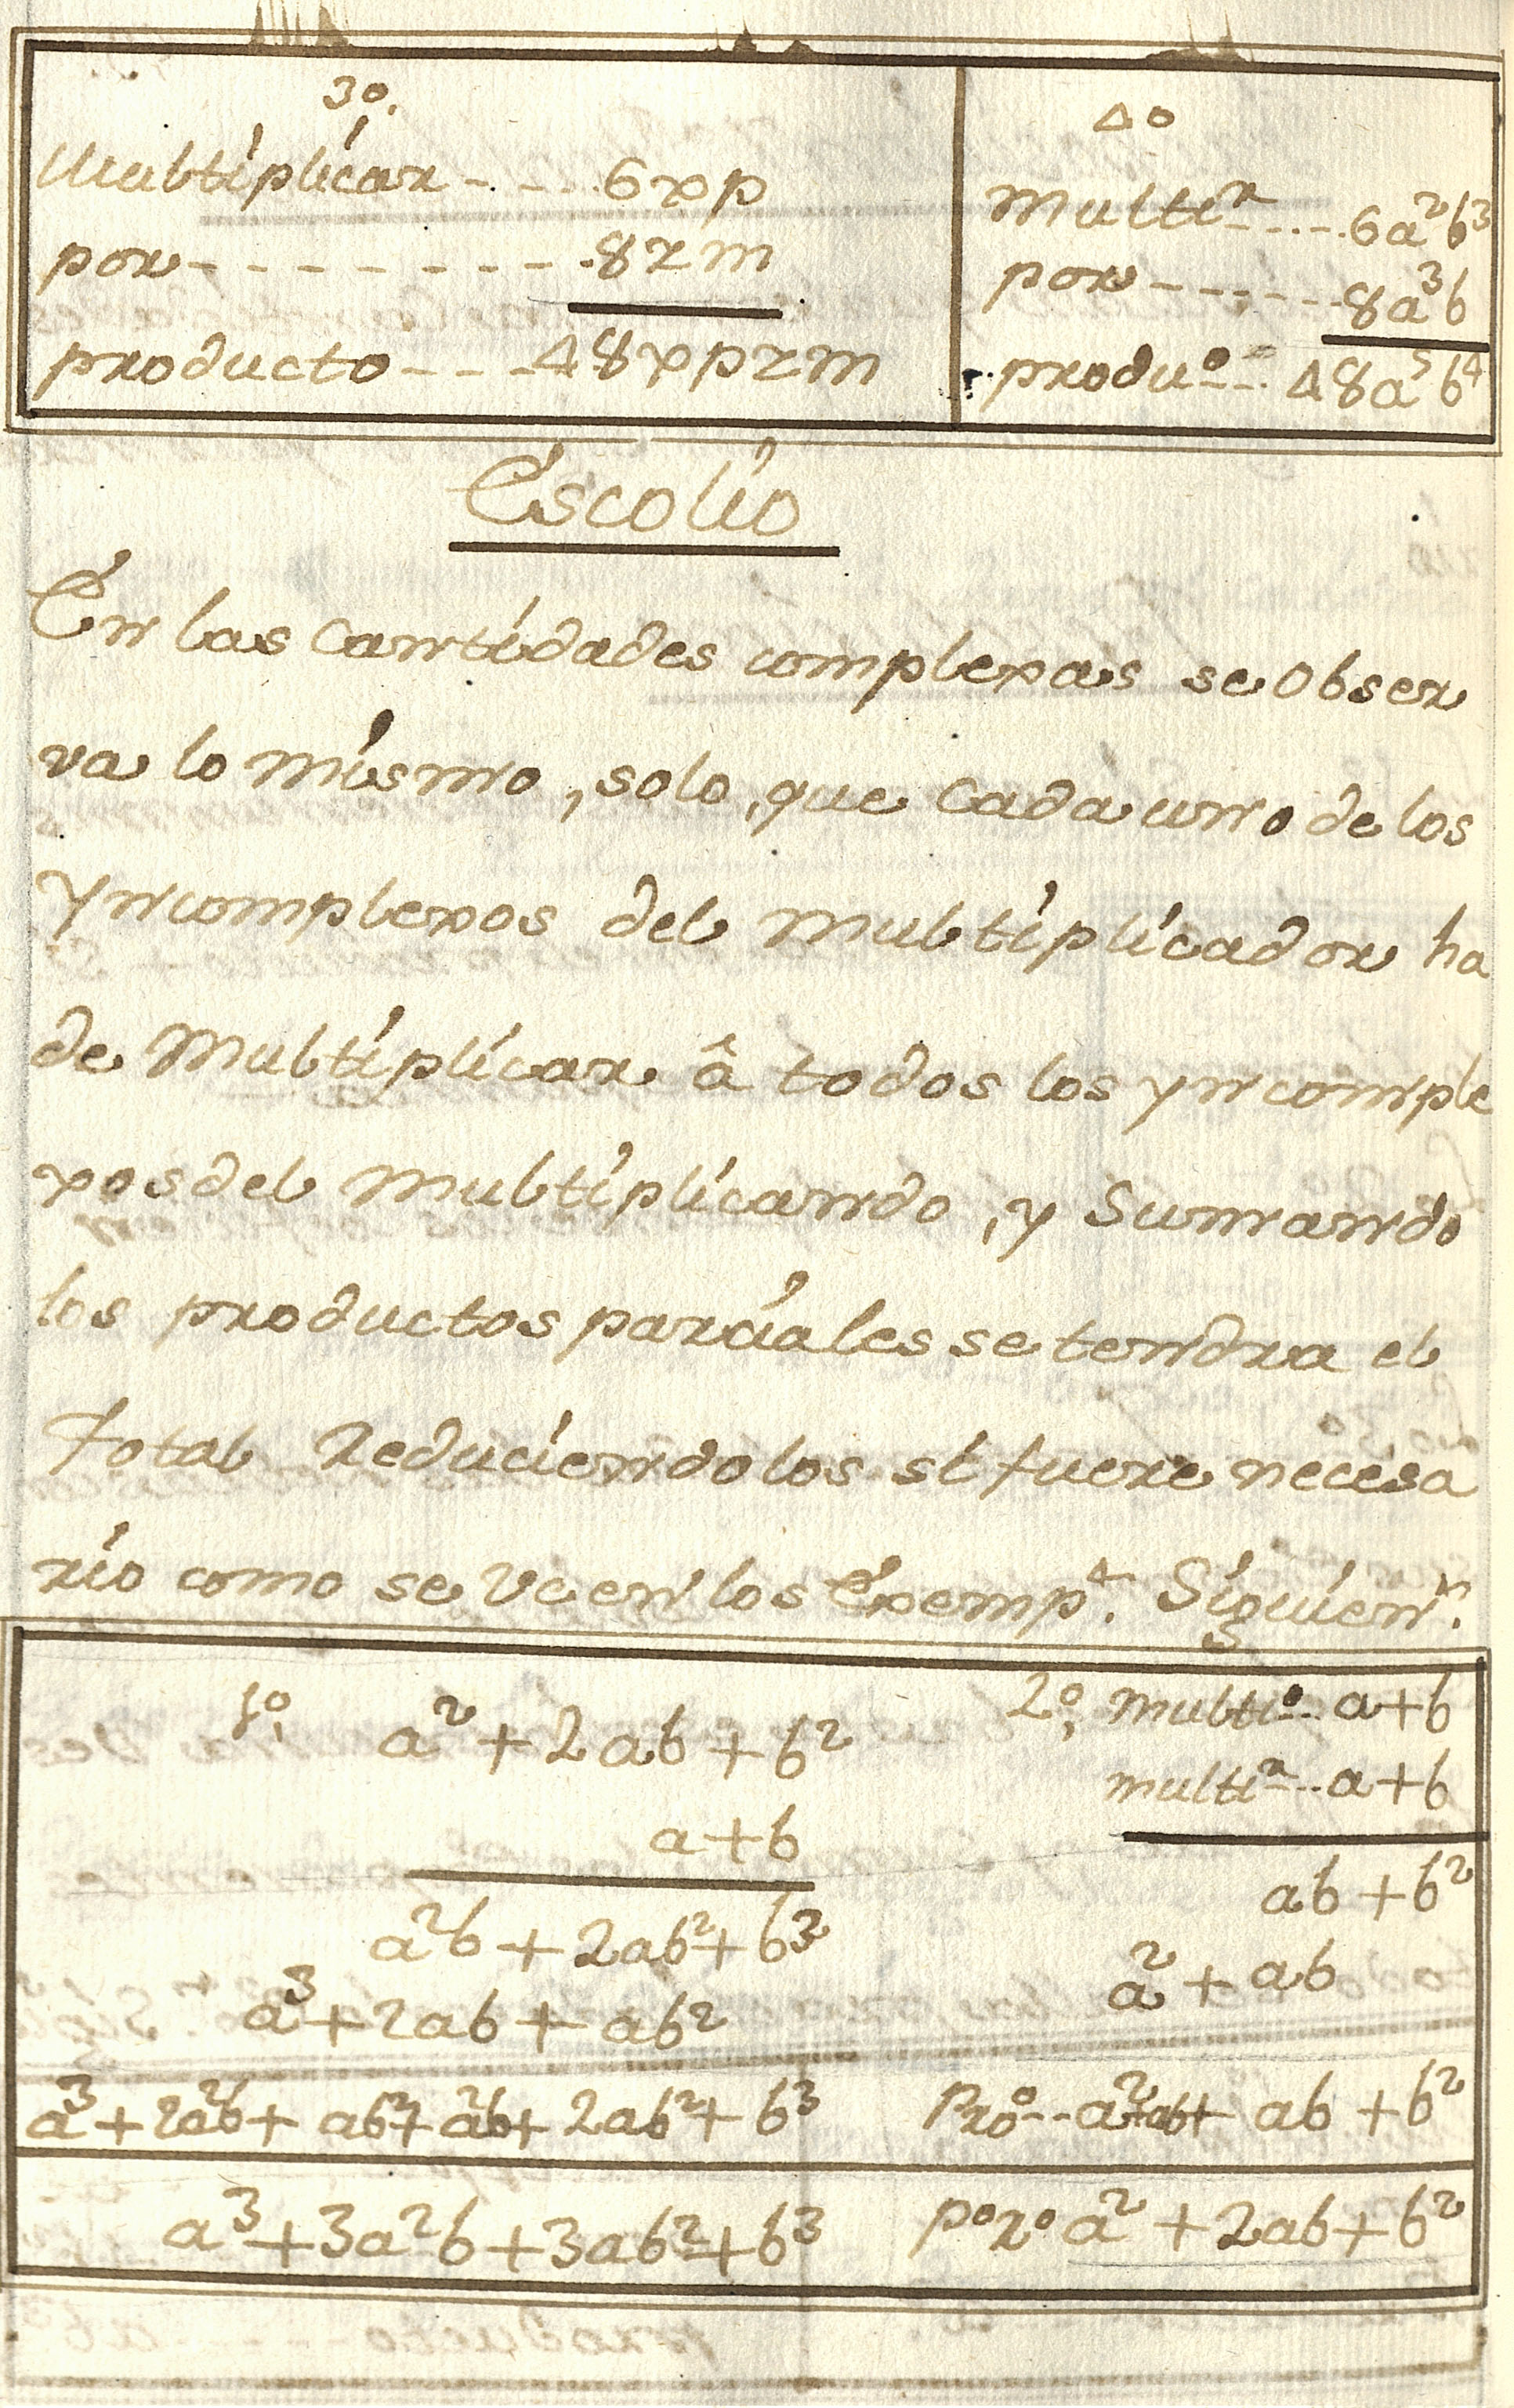 3º.
Multiplicar - - - - 6xp
por - - - - - - - - - 8zm
producto - - - - 48xpzm
4º
Multirr - - - - 6a²b³
por - - - - - - 8a³b
produº - - - 48a⁵b⁴
Escolio
En las Cantidades complexas se Obser
va lo mismo, solo, que Cada uno de los
Yncomplexos del Multiplicador ha
de Multiplicar â todos los yncomple
xos del Multiplicando, y Sumando
los productos parciales se tendra el
Total Reduciendolos si fuere necesa
rio como se Ve en los Exempˢ. Siguienˢ.
1º. a² + 2ab + b²
a+b
a²b + 2ab² + b³
a³ + 2ab + ab²
a³ + 2a²b + ab² + a²b + 2ab² + b³
a³ + 3a²b + 3ab² + b³
2º, multiº - - a+b
multiʳ - - - a+b
ab + b²
a² + ab
Proº - - - a² + ab + ab + b²
pºrº a² + 2ab + b²